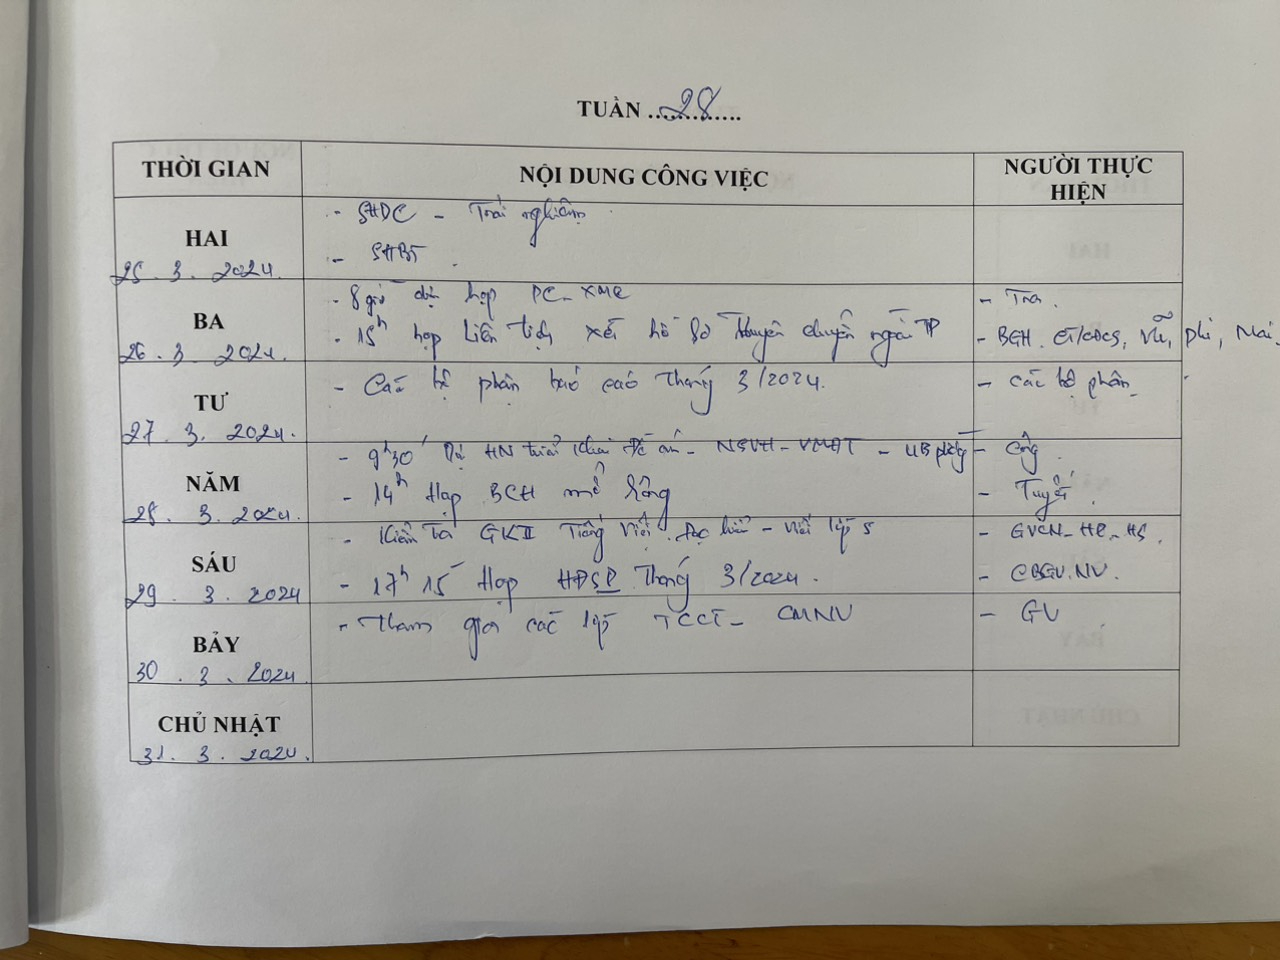 TUẦN ....28....
THỜI GIAN NỘI DUNG CÔNG VIỆC NGƯỜI THỰC HIỆN
HAI
25. 3. 2024.
- SHDC - Trải nghiệm
- SHBT.
BA
26. 3. 2024.
- 8 giờ dự họp PC-XMC - Tra.
- 15h họp Liên tịch xét hồ sơ thuyên chuyển ngoài TP - BGH. CT/CĐCS, Vũ, Phi, Mai.
TƯ
27. 3. 2024.
- Các bộ phận báo cáo Tháng 3/2024. - Các bộ phận
NĂM
28. 3. 2024.
- 9h30' Dự HN triển khai Đề án - NSVH-VMĐT - UB phường - Công.
- 14h Họp BCH mở rộng - Tuyết.
SÁU
29. 3. 2024
- Kiểm tra GKII Tiếng Việt. Đọc hiểu - Viết lớp 5 - GVCN_HS.
- 17h 15' Họp HĐSP Tháng 3/2024. - CBGV.NV.
BẢY
30. 3. 2024
- Tham gia các lớp TCCT - CMNV - GV
CHỦ NHẬT
31. 3. 2024.